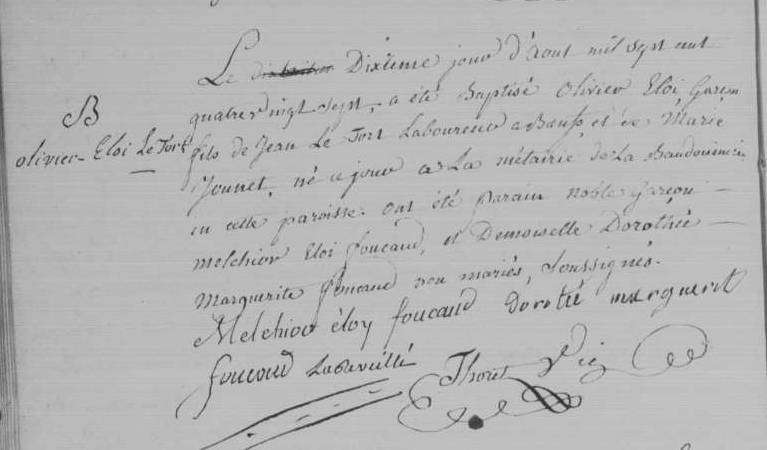 B
olivier Eloi Le Fort
Le Dixième jour d'aout mil sept cent
quatre vingt sept, a été Baptisé Olivier Eloi Garçon
fils de Jean Le Fort Laboureur a Bauf, et de Marie
Jounet, né ce jour a La métairie de La Baudouinerie
en cette paroisse. ont été parain noble Garçon
melchior Eloi foucaud, et Demoiselle Dorothée
Marguerite foucaud non mariés, Soussignés.
Melchior éloy foucaud Doroté marguerit
foucaud Laravillé Thoret Vic